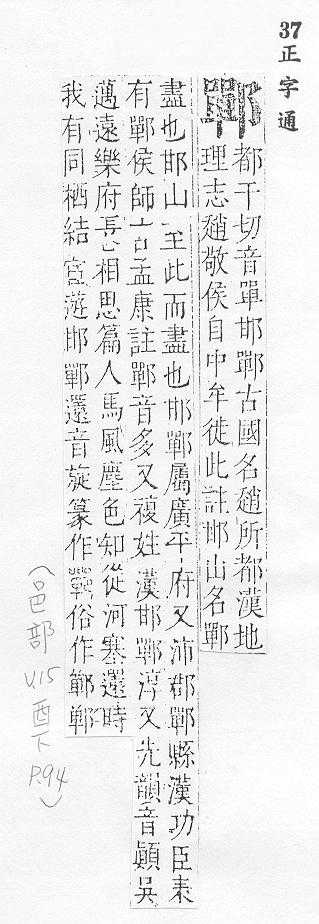 37
正字通
鄲
都干切音單邯鄲古國名趙所都漢地
理志趙敬侯自中牟徙此註邯山名鄲
盡也邯山至此而盡也邯鄲屬廣平府又沛郡鄲縣漢功臣表
有鄲侯師古孟康註鄲音多又複姓漢邯鄲淳又先韻音顚吳
邁遠樂府長相思篇人馬風塵色知從河塞還時
我有同栖結宦遊邯鄲還音旋篆作俗作
（邑部
V.15
酉下
P.94）